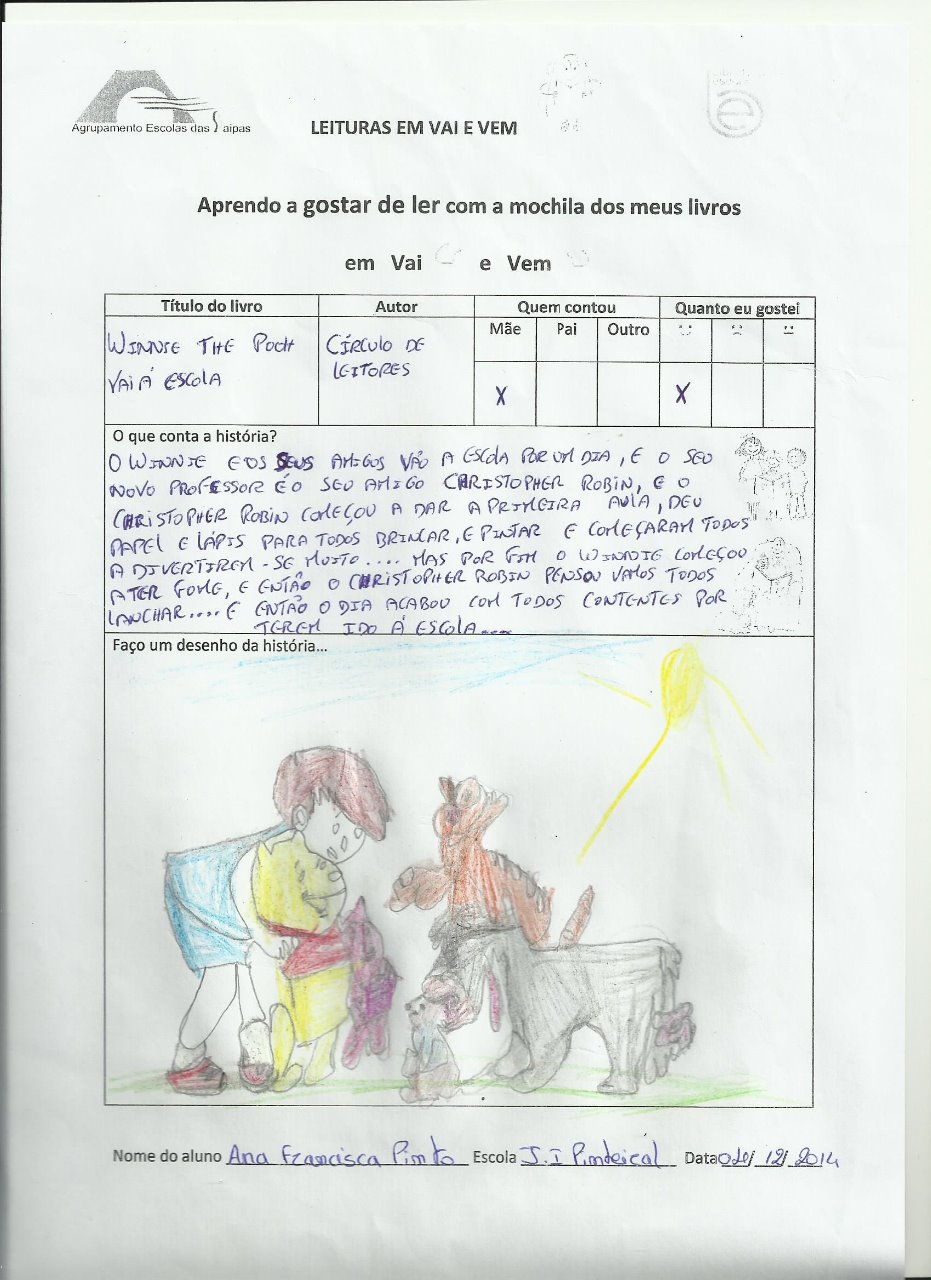 Agrupamento Escolas das Taipas
LEITURAS EM VAI E VEM
Aprendo a gostar de ler com a mochila dos meus livros
em Vai e Vem
Título do livro Autor Quem contou Quanto eu gostei
Mãe Pai Outro
WINNIE THE POOH
VAI Á ESCOLA
CÍRCULO DE
LEITORES
X X
O que conta a história?
O WINNIE E OS SEUS AMIGOS VÃO A ESCOLA POR UM DIA, E O SEU
NOVO PROFESSOR É O SEU AMIGO CHRISTOPHER ROBIN, E O
CHRISTOPHER ROBIN COMEÇOU A DAR A PRIMEIRA AULA, DEU
PAPEL E LÁPIS PARA TODOS BRINCAR, E PINTAR E COMEÇARAM TODOS
A DIVERTIREM-SE MUITO.... MAS POR FIM O WINNIE COMEÇOU
A TER FOME, E ENTÃO O CHRISTOPHER ROBIN PENSOU VAMOS TODOS
LANCHAR.... E ENTÃO O DIA ACABOU COM TODOS CONTENTES POR
TEREM IDO Á ESCOLA....
Faço um desenho da história...
Nome do aluno Ana Francisca Pinto Escola J.I Pinheiral Data /12/ 2014